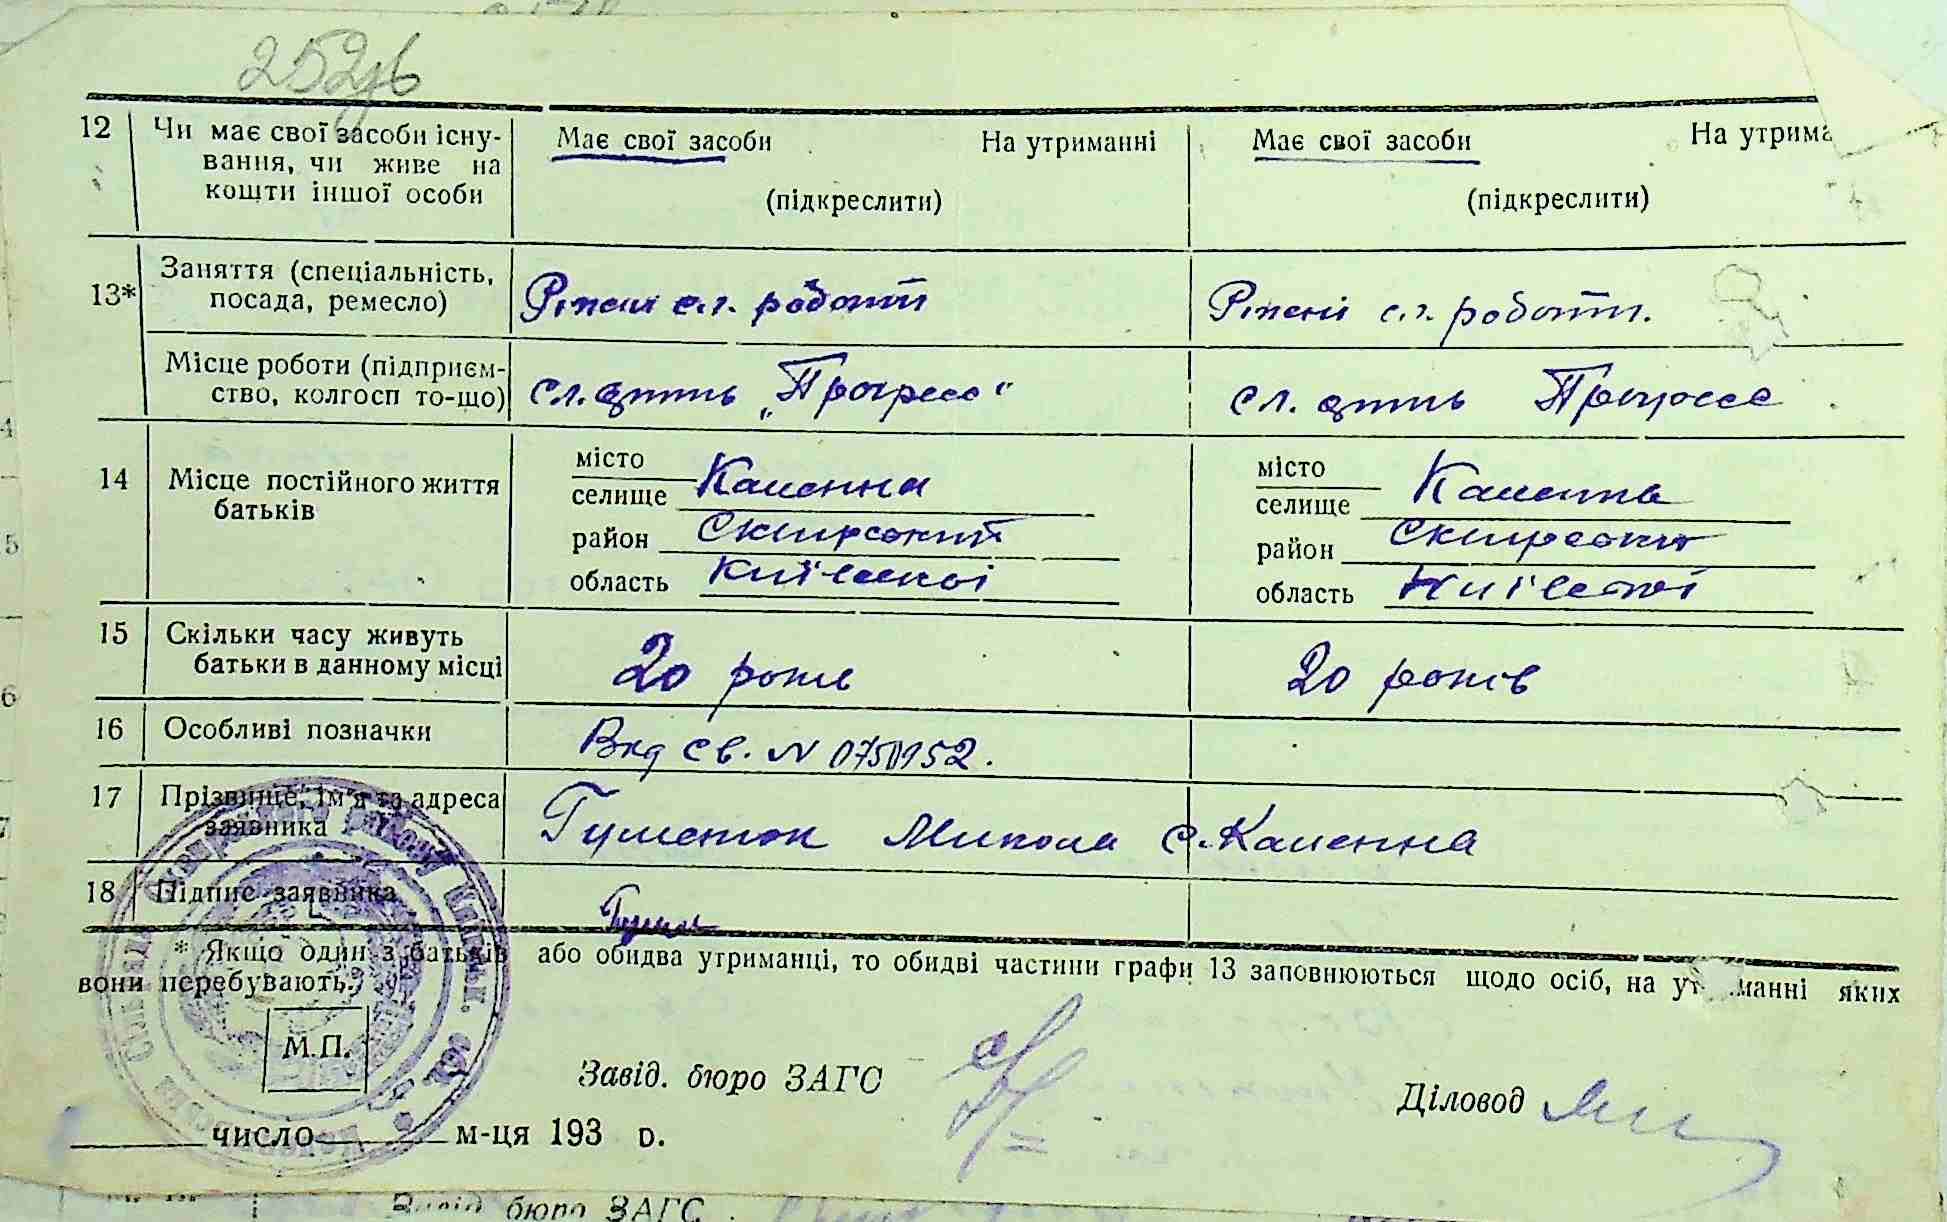 252зв
12 Чи має свої засоби існу- Має свої засоби На утриманні Має свої засоби На утрима
вання, чи живе на
кошти іншої особи (підкреслити) (підкреслити)
13* Заняття (спеціальність,
посада, ремесло) Ріжні с.г. роботи Ріжні с.г. роботи.
Місце роботи (підприєм-
ство, колгосп то-що) сл. артіль „Прогресс" сл. артіль Прогресс
14 Місце постійного життя
батьків
місто Каменна місто Каменна
селище селище
район Сквирський район Сквирський
область Київської область Київської
15 Скільки часу живуть
батьки в данному місці 20 років 20 років
16 Особливі позначки Вид св. N 0750152.
17 Прізвище, ім'я та адреса
заявника Гуменюк Микола с. Каменна
18 Підпис заявника
* Якщо один з батьків або обидва утриманці, то обидві частини графи 13 заповнюються щодо осіб, на ут манні яких
вони перебувають.
М.П.
Завід. бюро ЗАГС
Діловод
число м-ця 193 р.
Завід бюро ЗАГС